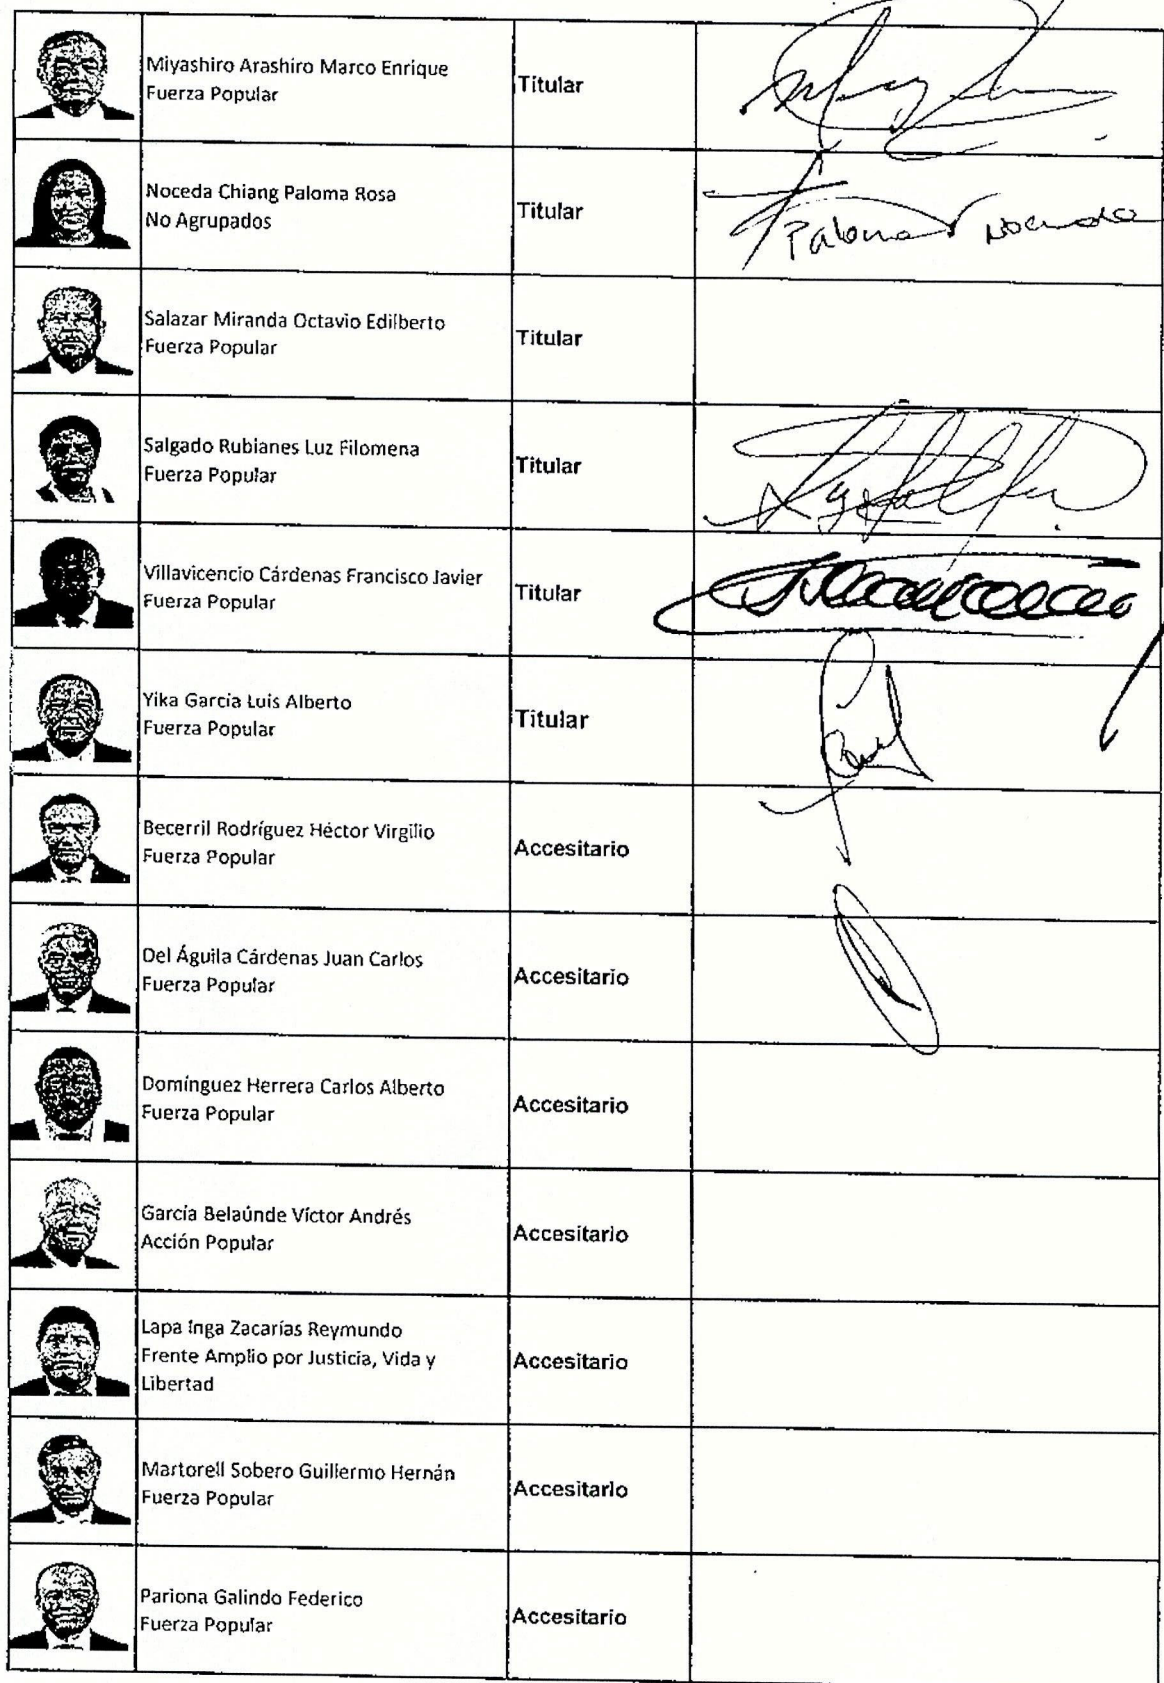 Miyashiro Arashiro Marco Enrique
Fuerza Popular
Titular
Noceda Chiang Paloma Rosa
No Agrupados
Titular
Paloma Noceda
Salazar Miranda Octavio Edilberto
Fuerza Popular
Titular
Salgado Rubianes Luz Filomena
Fuerza Popular
Titular
Villavicencio Cárdenas Francisco Javier
Fuerza Popular
Titular
Yika García Luis Alberto
Fuerza Popular
Titular
Becerril Rodríguez Héctor Virgilio
Fuerza Popular
Accesitario
Del Águila Cárdenas Juan Carlos
Fuerza Popular
Accesitario
Domínguez Herrera Carlos Alberto
Fuerza Popular
Accesitario
García Belaúnde Víctor Andrés
Acción Popular
Accesitario
Lapa Inga Zacarías Reymundo
Frente Amplio por Justicia, Vida y
Libertad
Accesitario
Martorell Sobero Guillermo Hernán
Fuerza Popular
Accesitario
Pariona Galindo Federico
Fuerza Popular
Accesitario